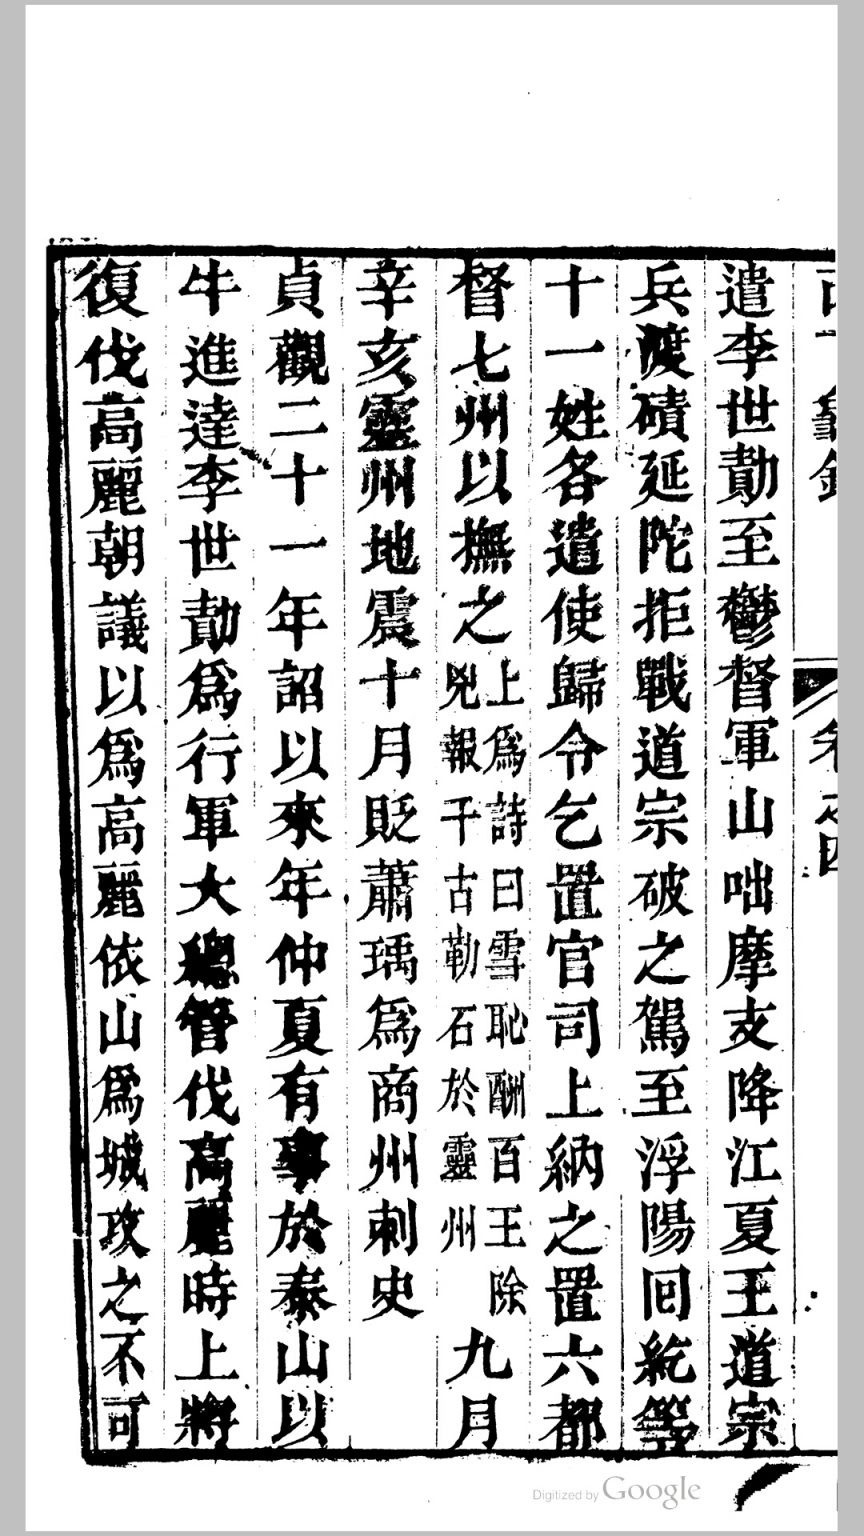 卷之四
遣李世勣至鬱督軍山咄摩支降江夏王道宗
兵渡磧延陀拒戰道宗破之駕至浮陽回紇等
十一姓各遣使歸令乞置官司上納之置六都
督七州以撫之上爲詩曰雪恥酬百王除兇報千古勒石於靈州九月
辛亥靈州地震十月貶蕭瑀爲商州刺史
貞觀二十一年詔以來年仲夏有事於泰山以
牛進達李世勣爲行軍大總管伐高麗時上將
復伐高麗朝議以爲高麗依山爲城攻之不可
Digitized by Google